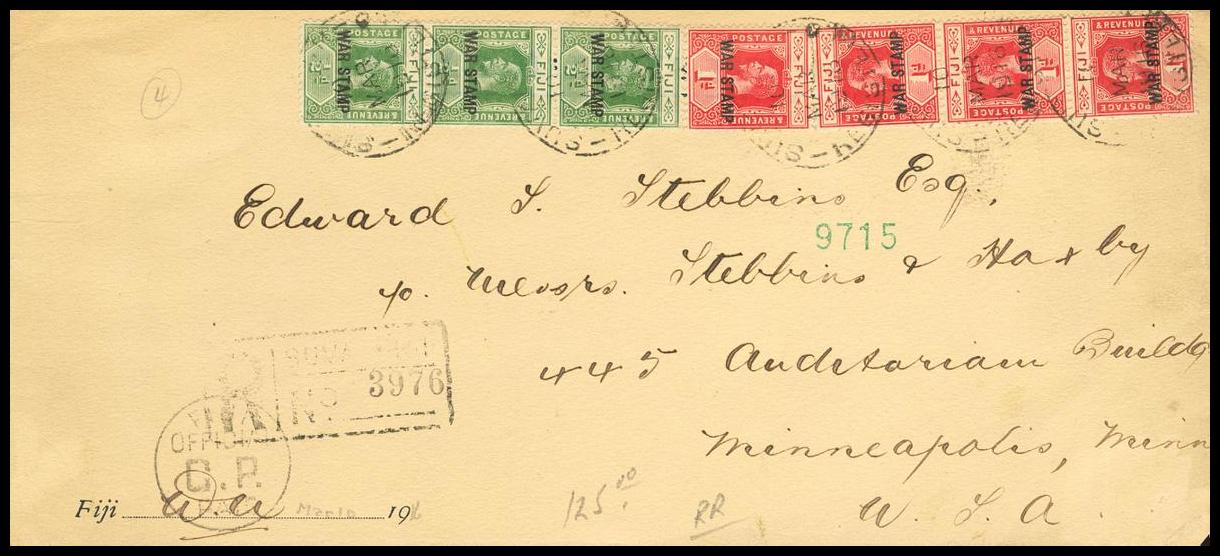 POSTAGE POSTAGE POSTAGE POSTAGE & REVENUE & REVENUE & REVENUE
WAR STAMP WAR STAMP WAR STAMP WAR STAMP WAR STAMP WAR STAMP WAR STAMP
FIJI FIJI FIJI FIJI FIJI FIJI FIJI
& REVENUE & REVENUE & REVENUE & REVENUE POSTAGE POSTAGE POSTAGE
4
Edward S. Stebbins Esq.
9715
c/o. Messrs. Stebbins & Haxby
445 Auditorium Buildg
Minneapolis, Minn
U. S. A.
SUVA FIJI
No 3976
OFFICIAL
G. P.
Fiji 191
125.00
RR